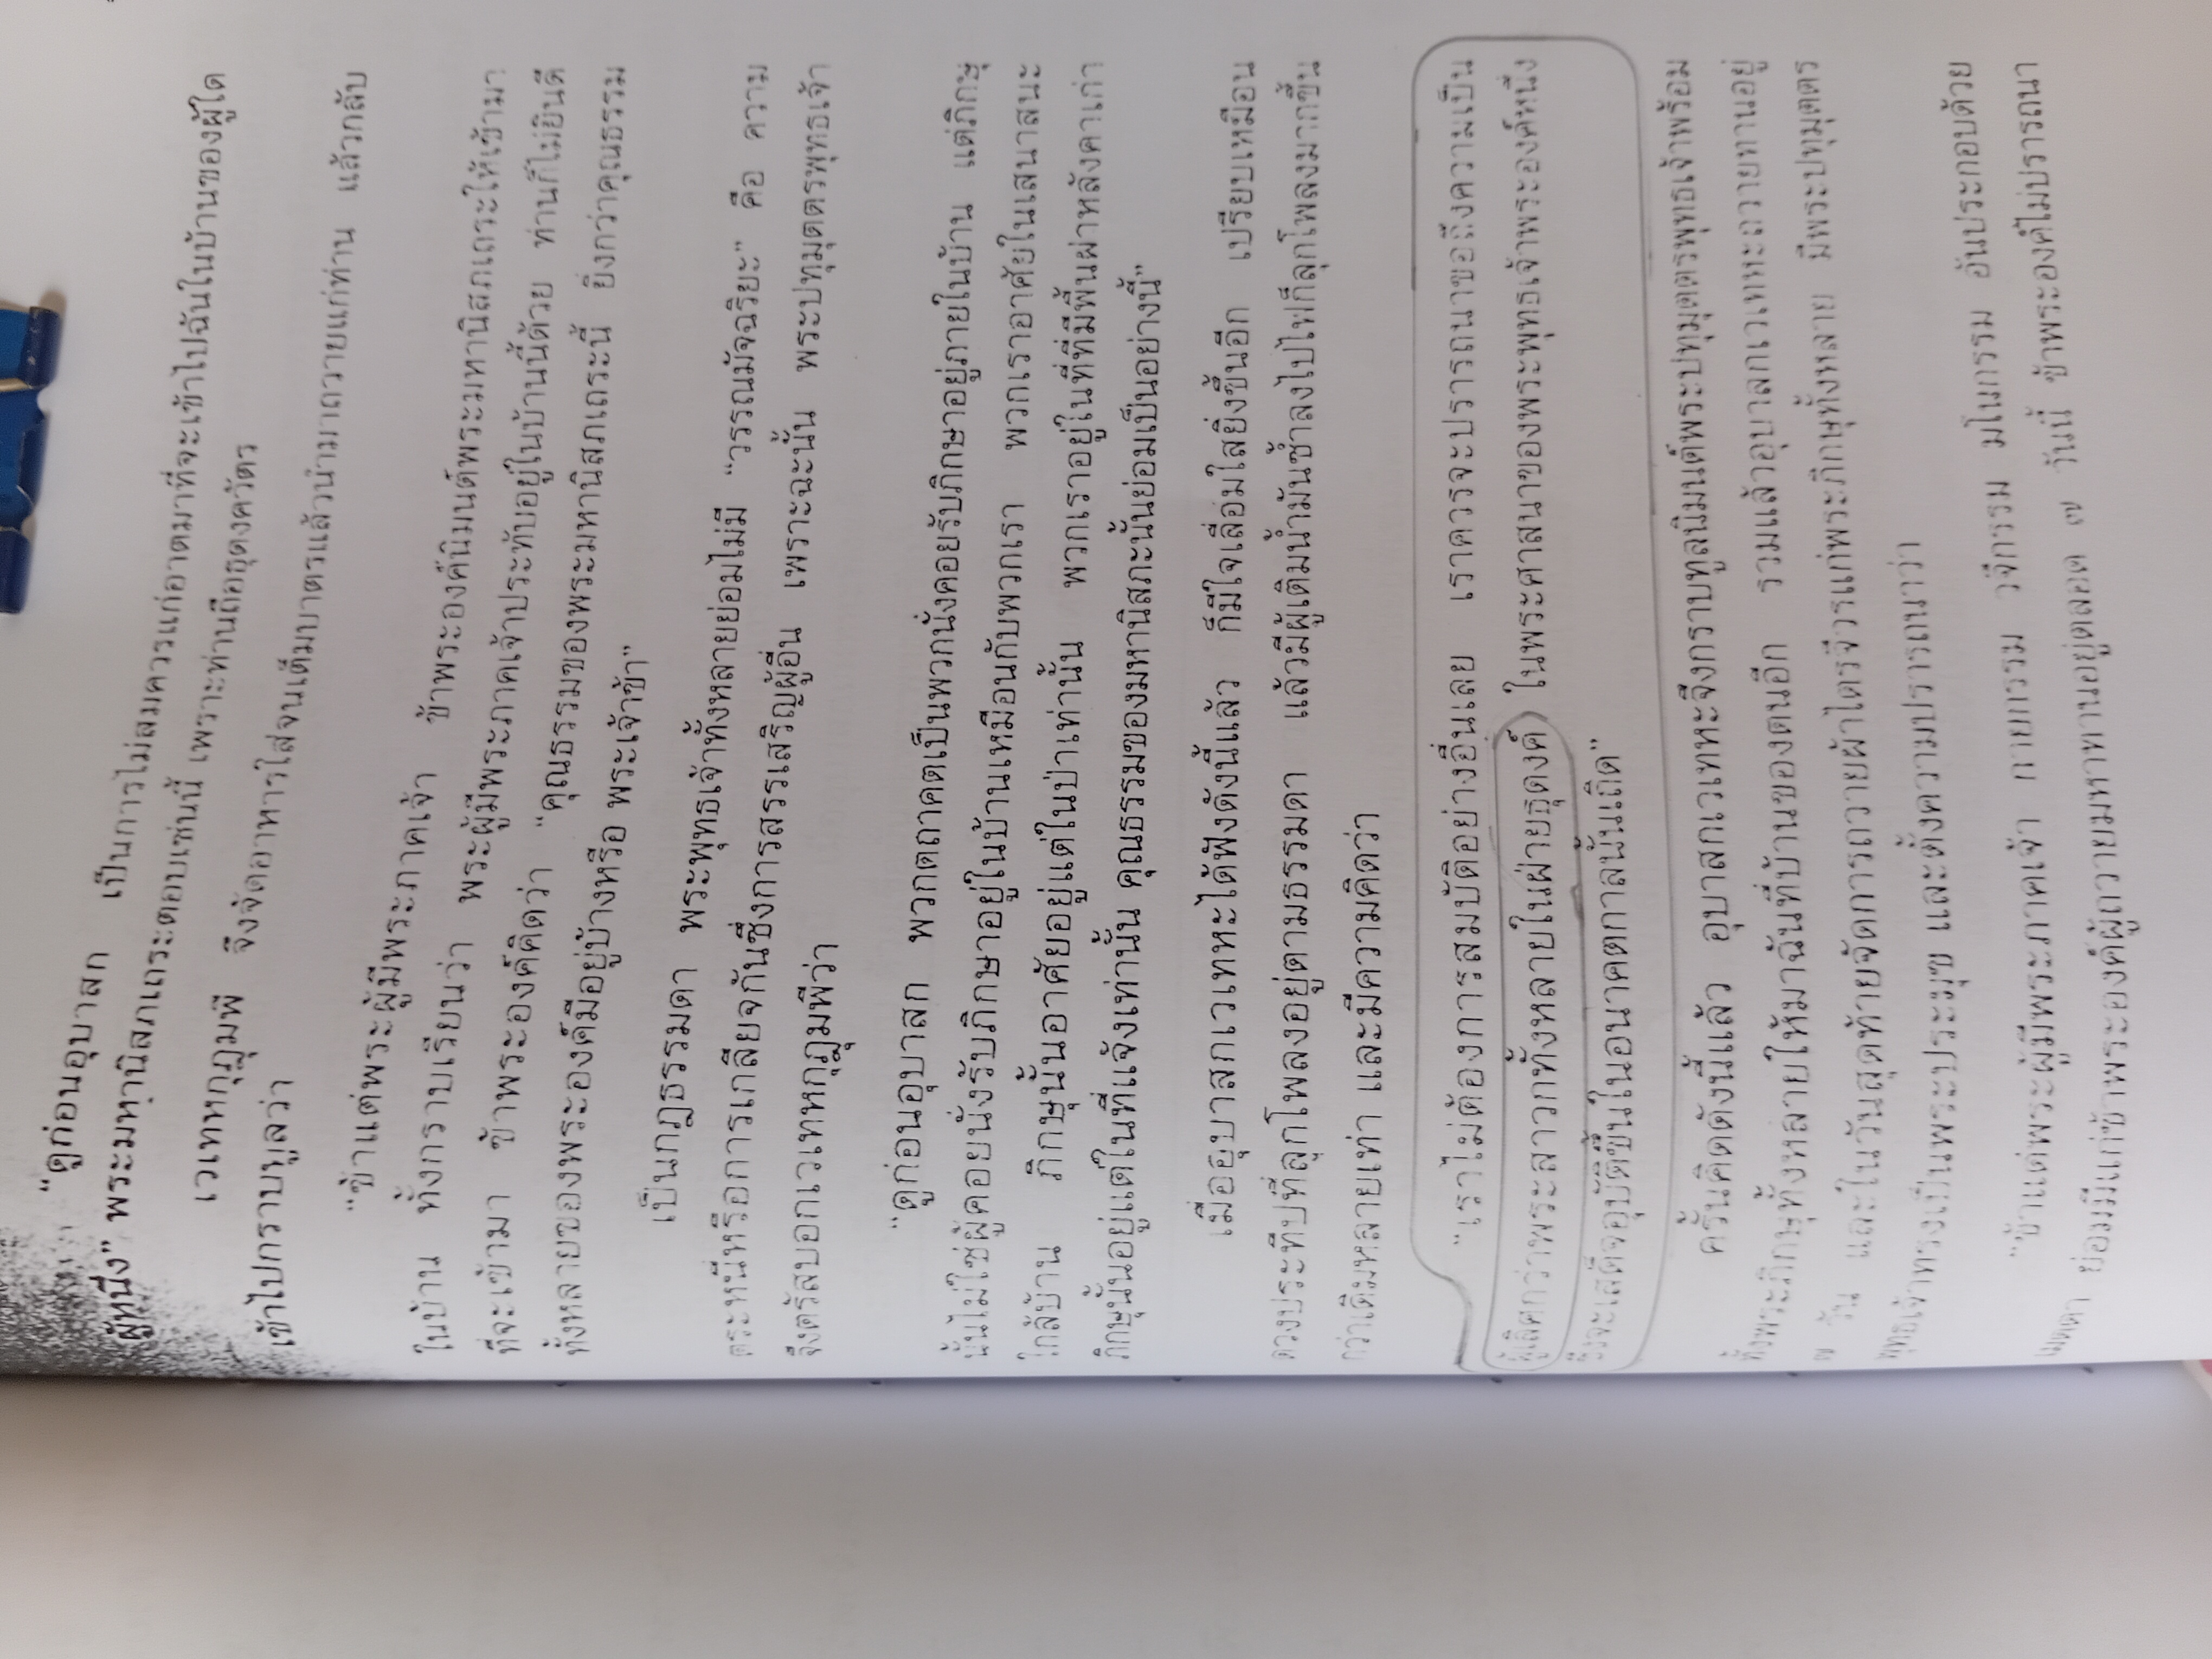 "ดูก่อนอุบาสก เป็นการไม่สมควรแก่อาตมาที่จะเข้าไปฉันในบ้านของผู้ใด
ผู้หนึ่ง" พระมหานิสภเถระตอบเช่นนี้ เพราะท่านถือธุดงควัตร
เวเทหกุฎุมพี จึงจัดอาหารใส่จนเต็มบาตรแล้วนำมาถวายแก่ท่าน แล้วกลับ
เข้าไปกราบทูลว่า
"ข้าแต่พระผู้มีพระภาคเจ้า ข้าพระองค์นิมนต์พระมหานิสภเถระให้เข้ามา
ในบ้าน ทั้งกราบเรียนว่า พระผู้มีพระภาคเจ้าประทับอยู่ในบ้านนี้ด้วย ท่านก็ไม่ยินดี
ที่จะเข้ามา ข้าพระองค์คิดว่า "คุณธรรมของพระมหานิสภเถระนี้ ยิ่งกว่าคุณธรรม
ทั้งหลายของพระองค์มีอยู่บ้างหรือ พระเจ้าข้า"
เป็นกฎธรรมดา พระพุทธเจ้าทั้งหลายย่อมไม่มี "วรรณมัจฉริยะ" คือ ความ
ตระหนี่หรือการเกลียจกันซึ่งการสรรเสริญผู้อื่น เพราะฉะนั้น พระปทุมุตตรพุทธเจ้า
จึงตรัสบอกเวเทหกุฎุมพีว่า
"ดูก่อนอุบาสก พวกตถาคตเป็นพวกนั่งคอยรับภิกษาอยู่ภายในบ้าน แต่ภิกษุ
นั้นไม่ใช่ผู้คอยนั่งรับภิกษาอยู่ในบ้านเหมือนกับพวกเรา พวกเราอาศัยในเสนาสนะ
ใกล้บ้าน ภิกษุนั้นอาศัยอยู่แต่ในป่าเท่านั้น พวกเราอยู่ในที่ที่มีพื้นผ่าหลังคาเก่า
ภิกษุนั้นอยู่แต่ในที่แจ้งเท่านั้น คุณธรรมของมหานิสภะนั้นย่อมเป็นอย่างนี้"
เมื่ออุบาสกเวเทหะได้ฟังดังนี้แล้ว ก็มีใจเลื่อมใสยิ่งขึ้นอีก เปรียบเหมือน
ดวงประทีปที่ลุกโพลงอยู่ตามธรรมดา แล้วมีผู้เติมน้ำมันซ้ำลงไปไฟก็ลุกโพลงมากขึ้น
กว่าเดิมหลายเท่า และมีความคิดว่า
"เราไม่ต้องการสมบัติอย่างอื่นเลย เราควรจะปรารถนาขอถึงความเป็น
ผู้เลิศกว่าพระสาวกทั้งหลายในฝ่ายธุดงค์ ในพระศาสนาของพระพุทธเจ้าพระองค์หนึ่ง
ซึ่งจะเสด็จอุบัติขึ้นในอนาคตกาลนั้นเถิด"
ครั้นคิดดังนี้แล้ว อุบาสกเวเทหะจึงกราบทูลนิมนต์พระปทุมุตตรพุทธเจ้าพร้อม
ทั้งพระภิกษุทั้งหลายให้มาฉันที่บ้านของตนอีก รวมแล้วอุบาสกเวเทหะถวายทานอยู่
๗ วัน และในวันสุดท้ายจัดการถวายผ้าไตรจีวรแก่พระภิกษุทั้งหลาย มีพระปทุมุตตร
พุทธเจ้าทรงเป็นพระประมุข และตั้งความปรารถนาว่า
"ข้าแต่พระผู้มีพระภาคเจ้า กายกรรม วจีกรรม มโนกรรม อันประกอบด้วย
เมตตา ย่อมมีแก่ข้าพระองค์ผู้ถวายมหาทานอยู่ตลอด ๗ วันนี้ ข้าพระองค์ไม่ปรารถนา